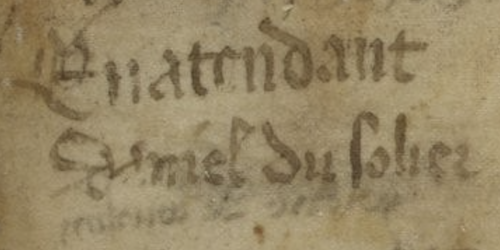 Enatendant
Daniel du solier